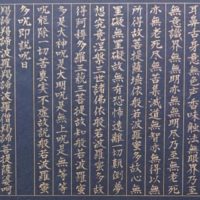 耳鼻舌身意無色聲香味觸法無眼界乃至
無意識界無無明亦無無明盡乃至無老死
亦無老死盡無苦集滅道無智亦無得以無
所得故菩提薩埵依般若波羅蜜多故心無
罣礙無罣礙故無有恐怖遠離一切顛倒夢
想究竟涅槃三世諸佛依般若波羅蜜多故
得阿耨多羅三藐三菩提故知般若波羅蜜
多是大神呪是大明呪是無上呪是無等等
呪能除一切苦真實不虛故說般若波羅蜜
多呪即說呪曰
羯諦羯諦波羅羯諦波羅僧羯諦菩提薩婆呵